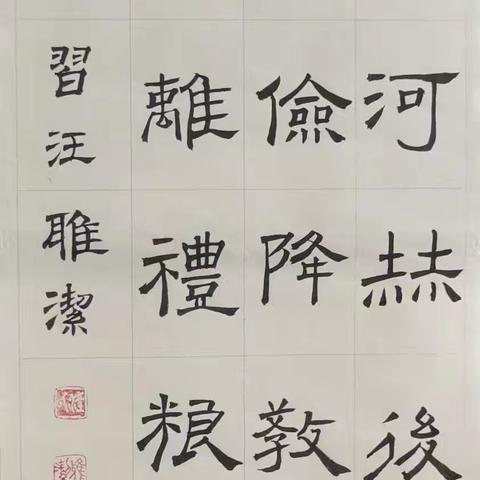 河赫後
儉降教
離禮粮
習汪雅潔